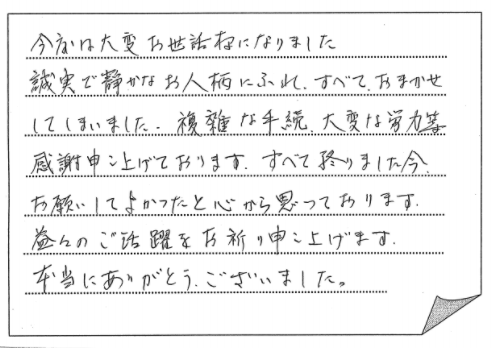 今度は大変お世話になりました
誠実で静かなお人柄にふれ、すべて、おまかせ
してしまいました。複雑な手続、大変な労力等
感謝申し上げております。すべて終りました今、
お願いしてよかったと心から思っております。
益々のご活躍をお祈り申し上げます。
本当にありがとうございました。